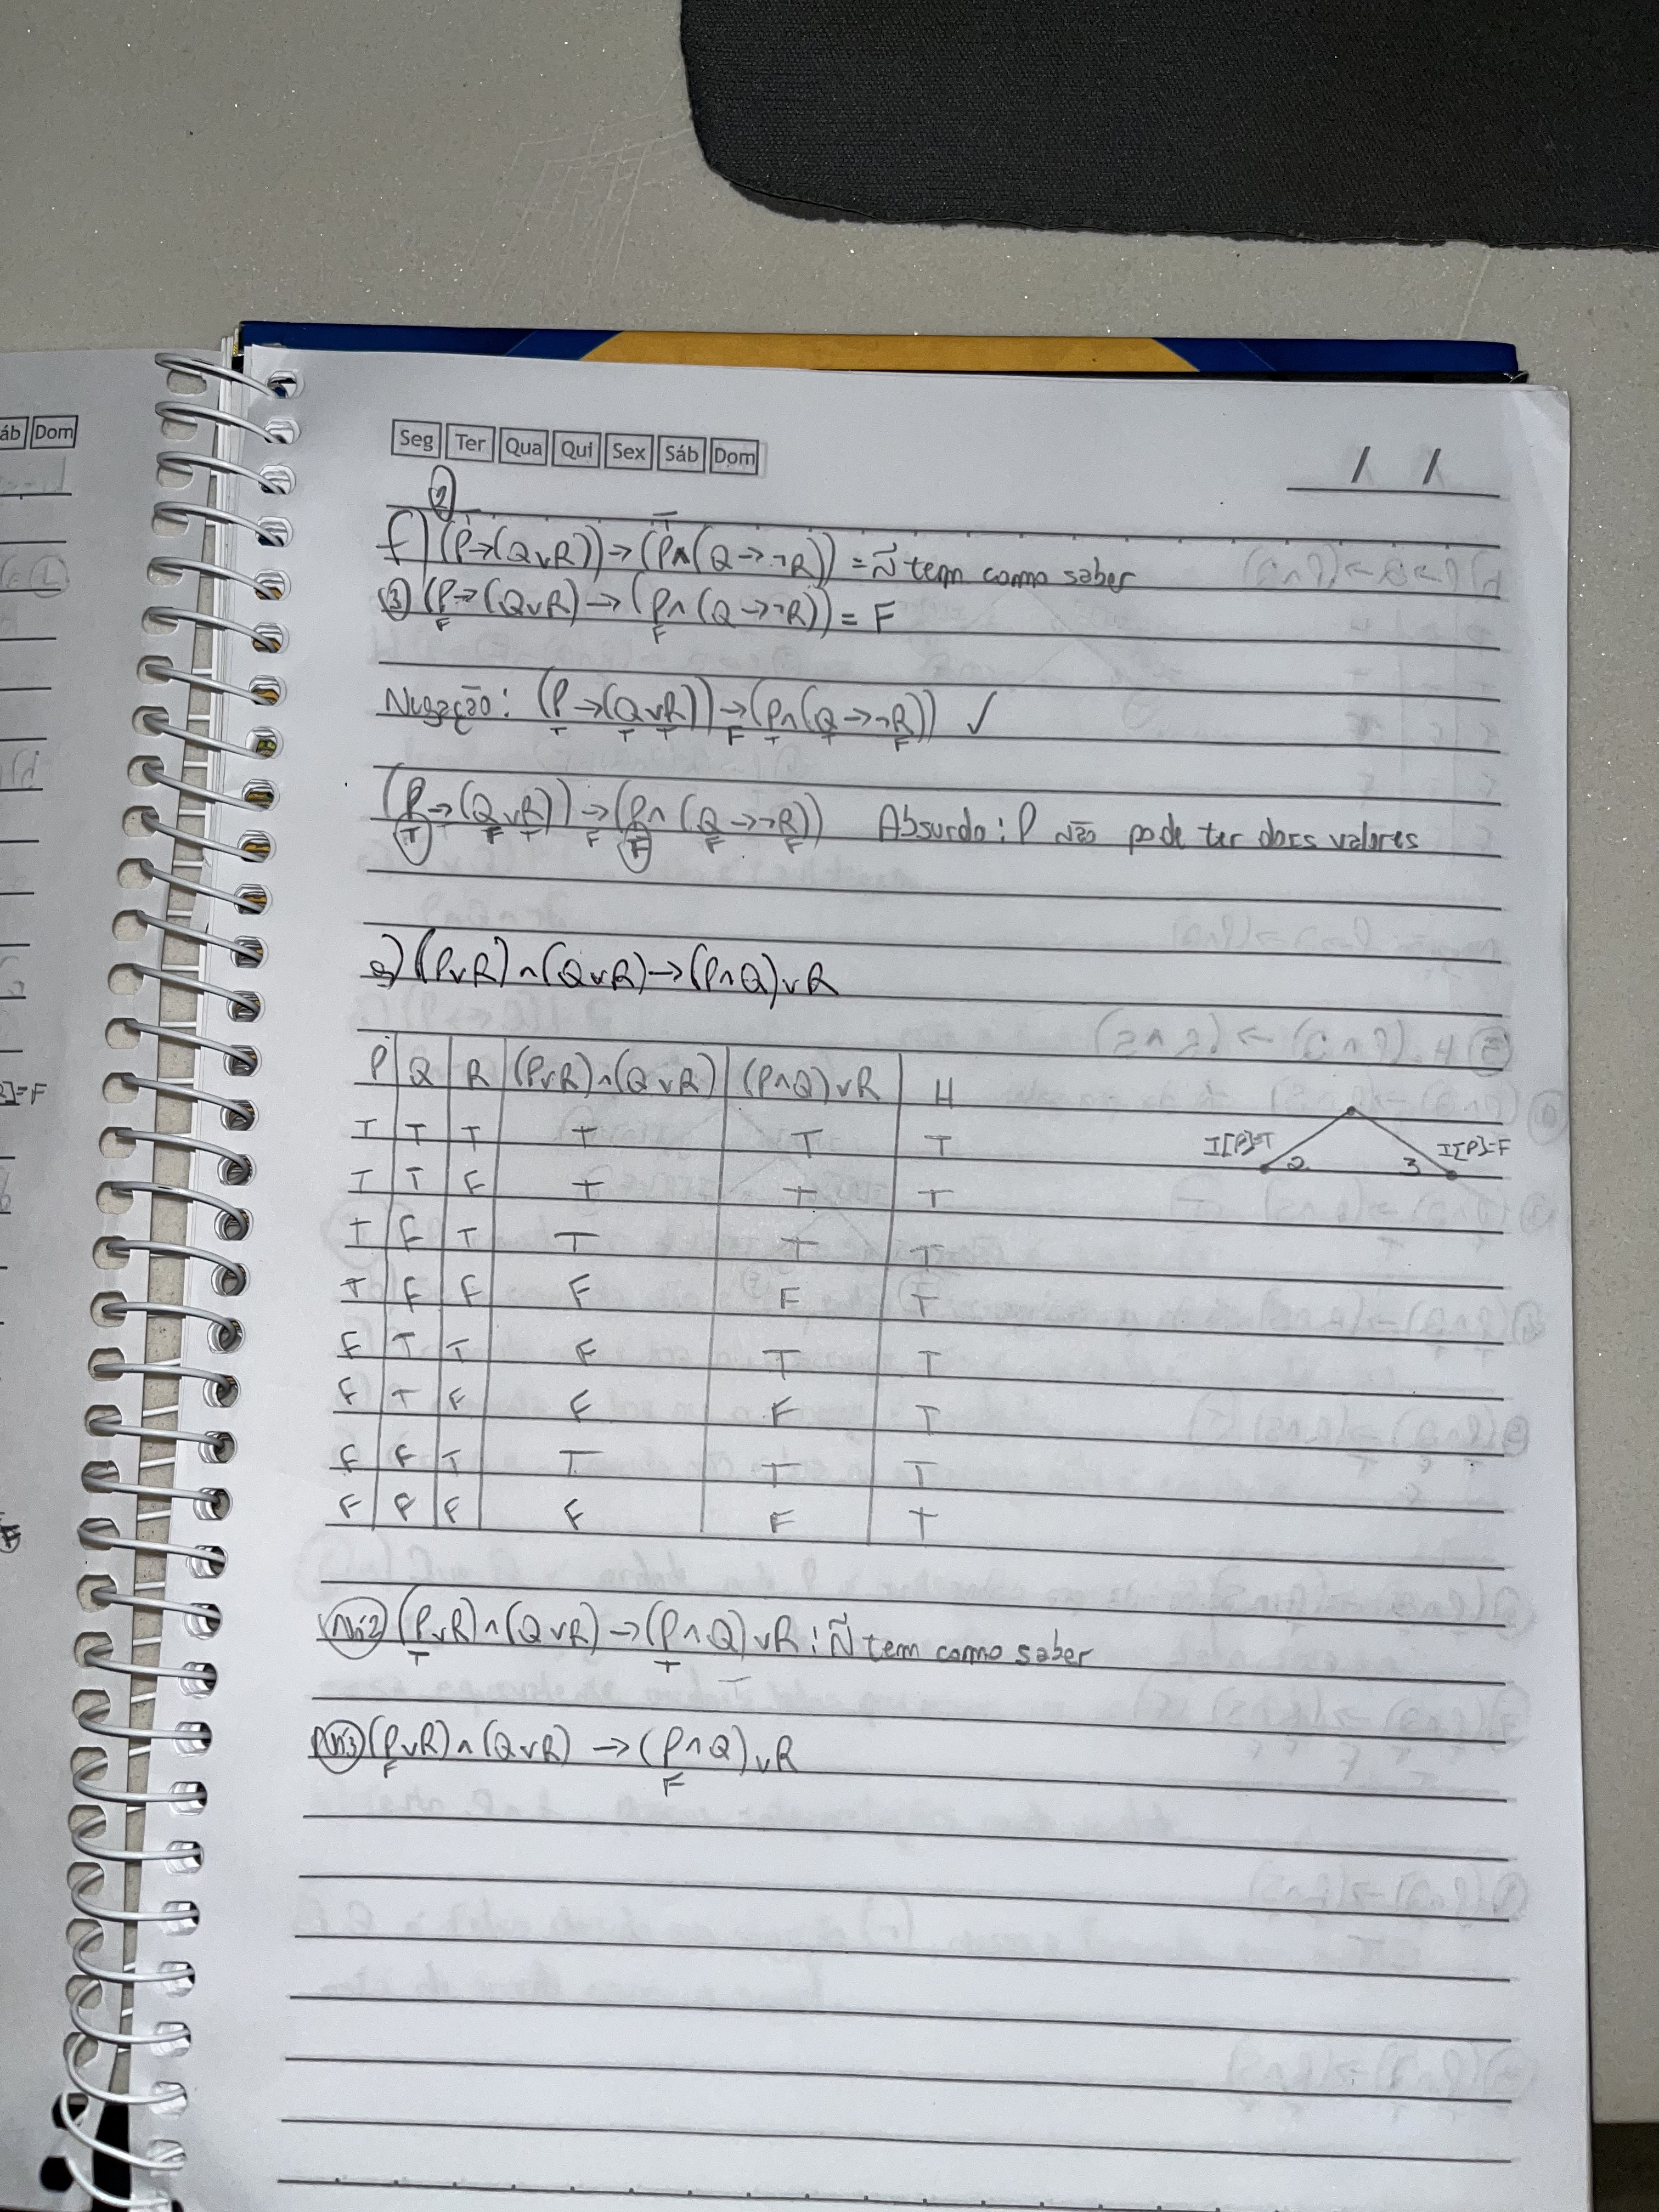 áb Dom
Seg Ter Qua Qui Sex Sáb Dom
/ /
②
f) (P→(Q∨R))→(P∧(Q→¬R)) = Ñ tem como saber
③ (P→(Q∨R)→(P∧(Q→¬R)) = F
F F
Negação: (P→(Q∨R))→(P∧(Q→¬R)) ✓
T T T F T T F
(P→(Q∨R))→(P∧(Q→¬R)) Absurdo: P não pode ter dois valores
T T F T F F F F
g) (P∨R)∧(Q∨R)→(P∧Q)∨R
P Q R (P∨R)∧(Q∨R) (P∧Q)∨R H
T T T T T T
T T F T T T
T F T T T T
T F F F F T
F T T F T T
F T F F F T
F F T T T T
F F F F F T
I[P]=T I[P]=F
2 3
Nó2 (P∨R)∧(Q∨R)→(P∧Q)∨R: Ñ tem como saber
T T
Nó3 (P∨R)∧(Q∨R)→(P∧Q)∨R
F F
]=F